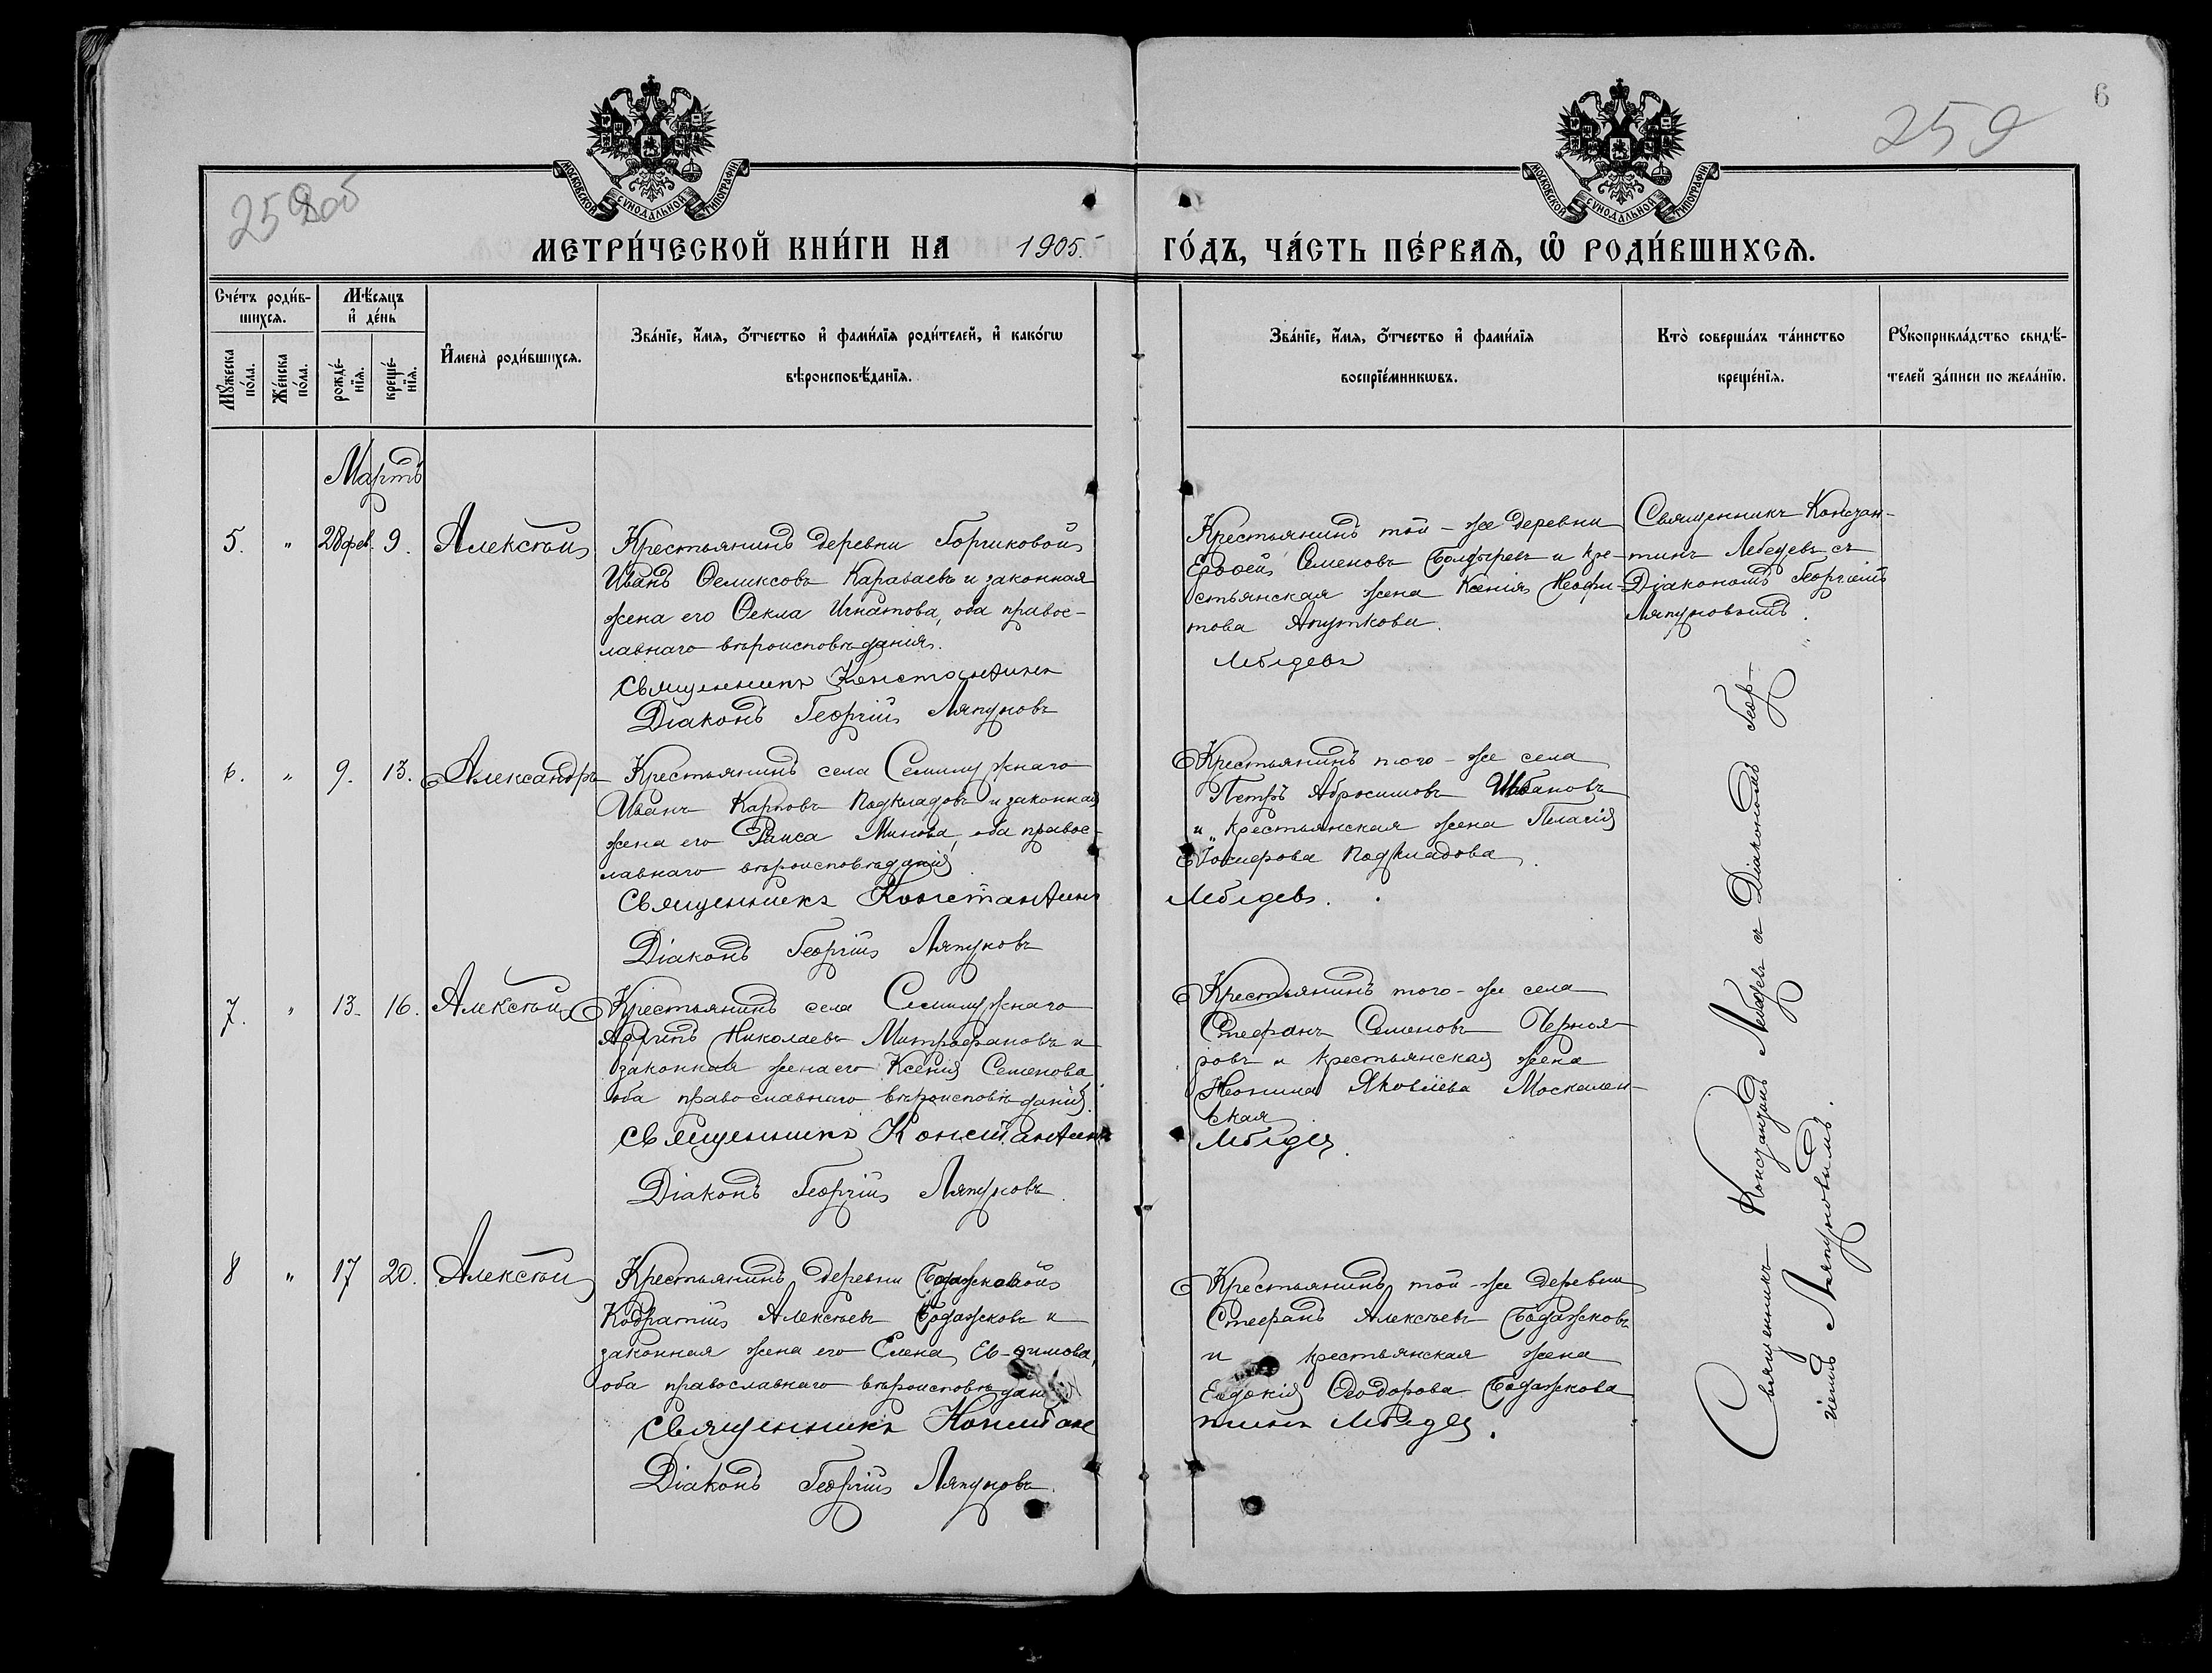 6
259
25
МОСКОВСКОЙ СѴНОДАЛЬНОЙ ТИПОГРАФІИ
МОСКОВСКОЙ СѴНОДАЛЬНОЙ ТИПОГРАФІИ
МЕТРИ́ЧЕСКОЙ КНИ́ГИ НА 1905. ГО́ДЪ, ЧА́СТЬ ПЕ́РВАѦ, Ѽ РОДИ́ВШИХСѦ.
Сче́тъ роди́в-
шихсѧ.
Мꙋ́жеска
по́ла.
Же́нска
по́ла.
Мѣ́сѧцъ
и҆ де́нь
рожде́-
нїѧ.
креще́-
нїѧ.
И҆мена̀ роди́вшихсѧ.
Зва́нїе, и҆́мѧ, ѻ҆́тчество и҆ фами́лїѧ роди́телей, и҆ како́гѡ
вѣроисповѣ́данїѧ.
Зва́нїе, и҆́мѧ, ѻ҆́тчество и҆ фами́лїѧ
воспрїе́мникѡвъ.
Кто̀ соверша́лъ та́инство
креще́нїѧ.
Рꙋкоприкла́дство свидѣ́-
телей за́писи по жела́нїю.
Мартъ
5. " 28 фев. 9. Алексѣй
Крестьянинъ деревни Горчиковой
Иванъ Ѳеликсовъ Караваевъ и законная
жена его Ѳекла Игнатова, оба правос-
лавнаго вѣроисповѣданія.
Священникъ Константинъ
Діаконъ Георгій Ляпуновъ
Крестьянинъ той-же деревни
Ероѳей Семеновъ Болдыревъ и кре-
стьянская жена Ксенія Неофи-
това
Лебедевъ
Священникъ Констан-
тинъ Лебедевъ съ
Діакономъ Георгіемъ
Ляпуновымъ.
6. " 9. 13. Александръ
Крестьянинъ села Семилужнаго
Иванъ Карповъ Подкладовъ и законная
жена его Раиса Минова, оба правос-
лавнаго вѣроисповѣданія
Священникъ Константинъ
Діаконъ Георгій Ляпуновъ
Крестьянинъ того-же села
Петръ Абросимовъ
и крестьянская жена
Подкладова.
Лебедевъ.
7. " 13. 16. Алексѣй
Крестьянинъ села Семилужнаго
Николаевъ Митрофановъ и
законная жена его Ксенія Семенова
оба православнаго вѣроисповѣданія.
Священникъ Константинъ
Діаконъ Георгій Ляпуновъ.
Крестьянинъ того-же села
Стефанъ Семеновъ
ровъ и крестьянская жена
Неонила Яковлева Москален-
ская
Лебедев.
8 " 17 20. Алексѣй
Крестьянинъ деревни Бодажковой
Кодратій Алексѣевъ Бодажковъ и
законная жена его Елена Ев-ѳимова,
оба православнаго вѣроисповѣданія
Священникъ Констан
Діаконъ Георгій Ляпуновъ.
Крестьянинъ той-же деревни
Стефанъ Алексѣевъ Бодажковъ
и крестьянская жена
Евдокія Ѳеодорова Бодажкова
тинъ Лебедев.
Священникъ Константинъ Лебедевъ съ Діакономъ Геор-
гіемъ Ляпуновымъ.